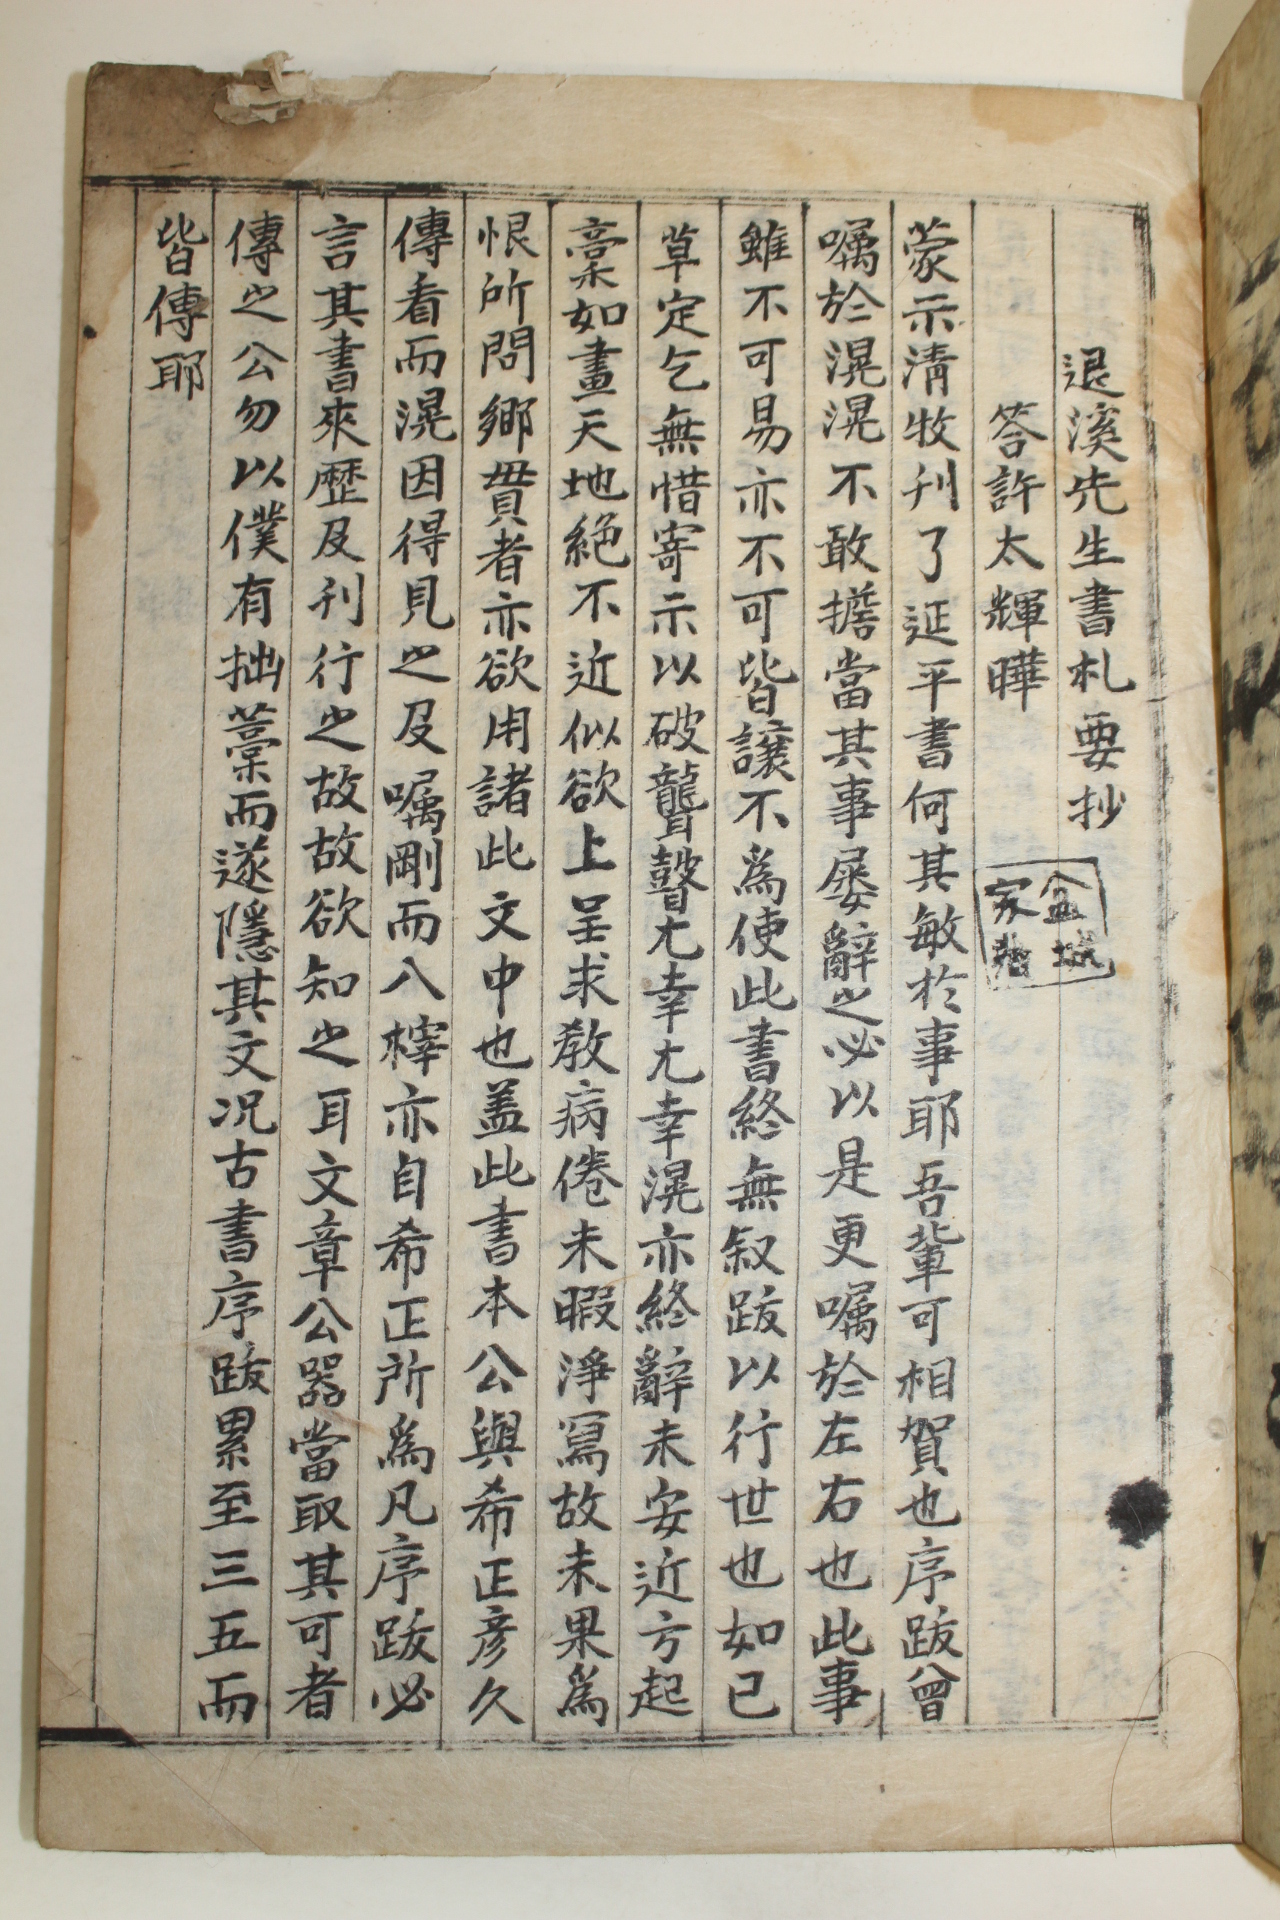 退溪先生書札要抄
答許太輝曄
蒙示淸牧刊了延平書何其敏於事耶吾輩可相賀也序跋曾
囑於滉滉不敢擔當其事屡辭之必以是更囑於左右也此事
雖不可易亦不可皆讓不爲使此書終無叙跋以行世也如已
草定乞無惜寄示以破聾瞽尤幸尤幸滉亦終辭未安近方起
稾如畫天地絶不近似欲上呈求教病倦未暇淨冩故未果爲
恨所問鄉貫者亦欲用諸此文中也盖此書本公與希正彦久
傳看而滉因得見之及囑剛而入榟亦自希正所爲凡序跋必
言其書來歷及刊行之故故欲知之耳文章公器當取其可者
傳之公勿以僕有拙藁而遂隱其文况古書序跋累至三五而
皆傳耶
盆城
家